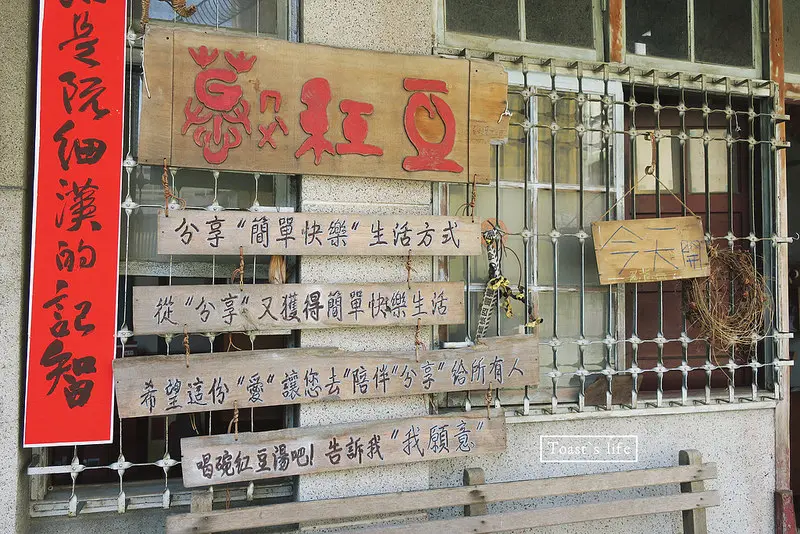 是阮細漢的記智
紅豆
分享"簡單快樂"生活方式
從"分享"又獲得簡單快樂生活
希望這份"愛"讓您去"陪伴"分享"給所有人
喝碗紅豆湯吧!告訴我"我願意"
今天開
Toast's life